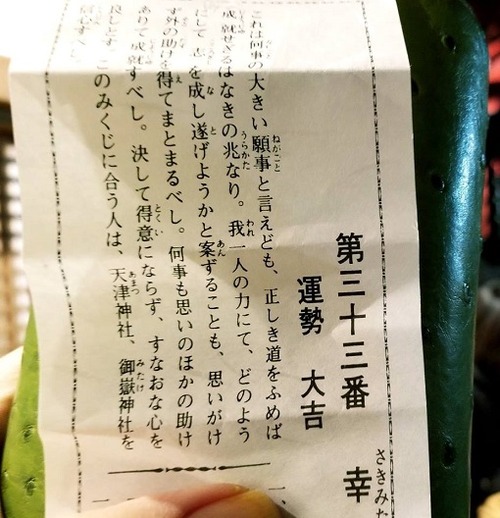 第三十三番
幸
さきみた
運勢 大吉
これは何事の大きい願事と言えども、正しき道をふめば
ねがごと
成就せざるはなきの兆なり。我一人の力にて、どのよう
うらかた われ
にして志を成し遂げようかと案ずることも、思いがけ
な と あん
ず外の助けを得てまとまるべし。何事も思いのほかの助け
え
ありて成就すべし。決して得意にならず、すなおな心を
とくい
良しとす。このみくじに合う人は、天津神社、御嶽神社を
あまつ みたけ